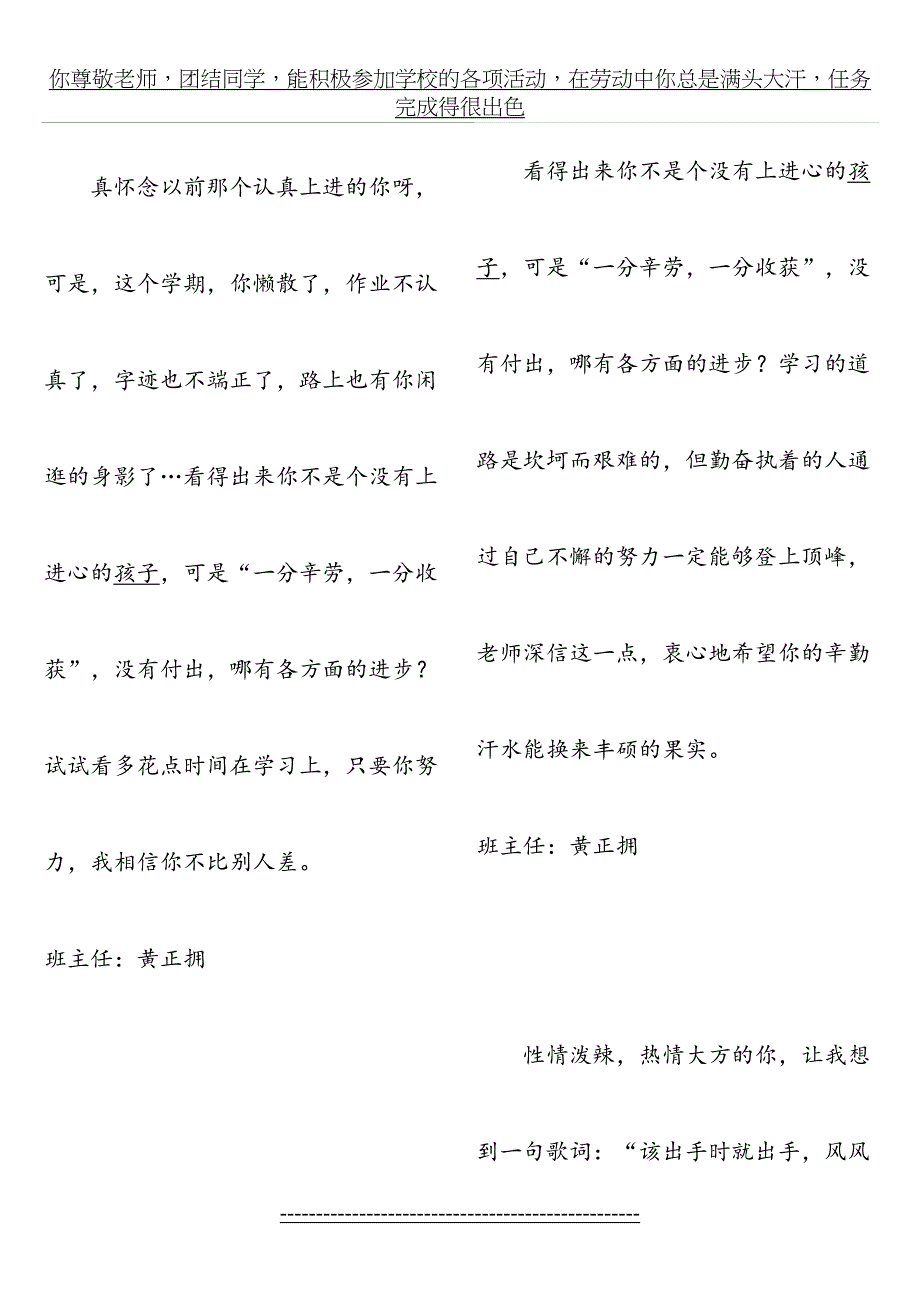 你尊敬老师，团结同学，能积极参加学校的各项活动，在劳动中你总是满头大汗，任务
完成得很出色
真怀念以前那个认真上进的你呀，
可是，这个学期，你懒散了，作业不认
真了，字迹也不端正了，路上也有你闲
逛的身影了…看得出来你不是个没有上
进心的孩子，可是“一分辛劳，一分收
获”，没有付出，哪有各方面的进步？
试试看多花点时间在学习上，只要你努
力，我相信你不比别人差。
班主任：黄正拥
看得出来你不是个没有上进心的孩
子，可是“一分辛劳，一分收获”，没
有付出，哪有各方面的进步？学习的道
路是坎坷而艰难的，但勤奋执着的人通
过自己不懈的努力一定能够登上顶峰，
老师深信这一点，衷心地希望你的辛勤
汗水能换来丰硕的果实。
班主任：黄正拥
性情泼辣，热情大方的你，让我想
到一句歌词：“该出手时就出手，风风
--------------------------------------------------